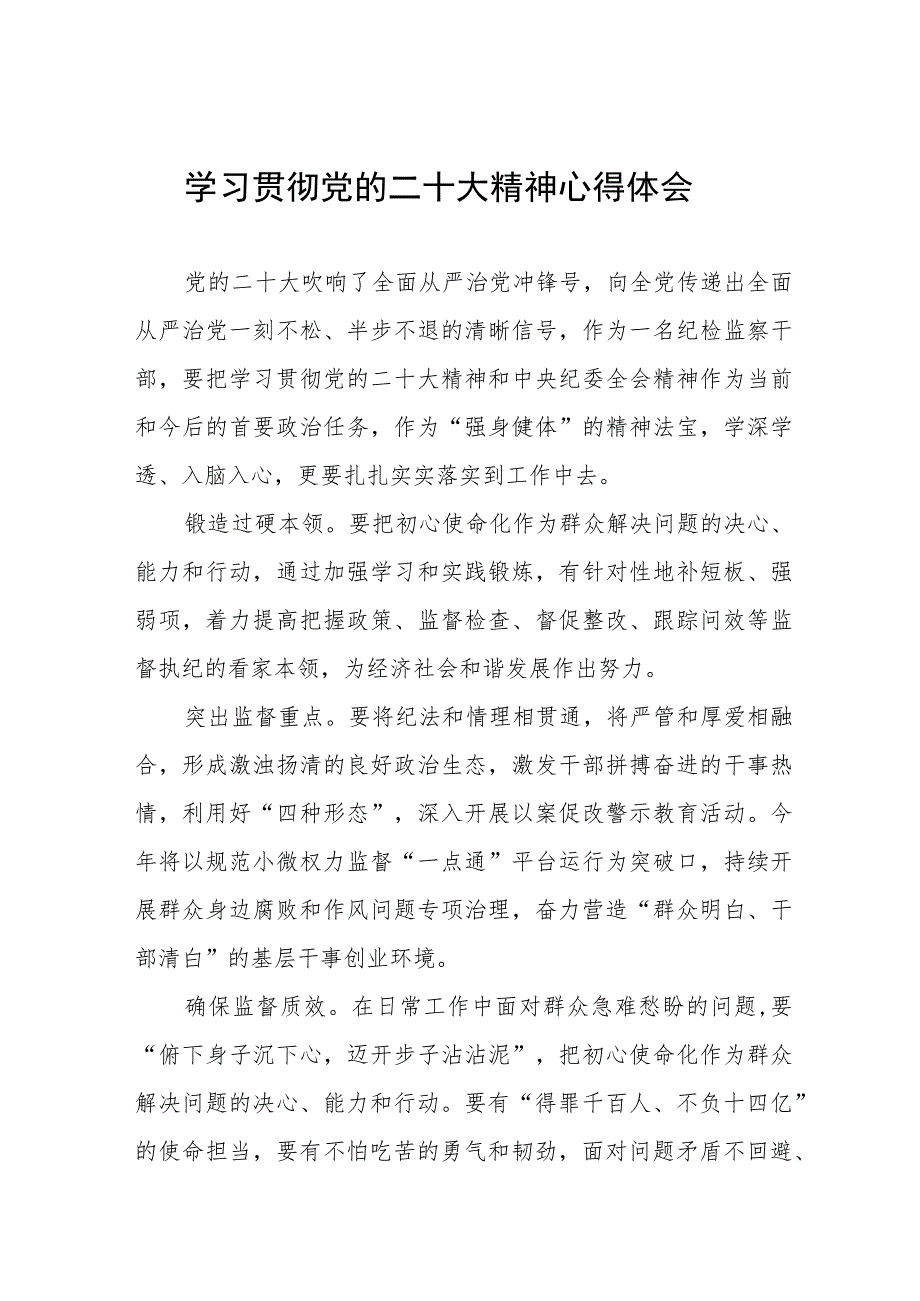 学习贯彻党的二十大精神心得体会
党的二十大吹响了全面从严治党冲锋号，向全党传递出全面
从严治党一刻不松、半步不退的清晰信号，作为一名纪检监察干
部，要把学习贯彻党的二十大精神和中央纪委全会精神作为当前
和今后的首要政治任务，作为“强身健体”的精神法宝，学深学
透、入脑入心，更要扎扎实实落实到工作中去。
锻造过硬本领。要把初心使命化作为群众解决问题的决心、
能力和行动，通过加强学习和实践锻炼，有针对性地补短板、强
弱项，着力提高把握政策、监督检查、督促整改、跟踪问效等监
督执纪的看家本领，为经济社会和谐发展作出努力。
突出监督重点。要将纪法和情理相贯通，将严管和厚爱相融
合，形成激浊扬清的良好政治生态，激发干部拼搏奋进的干事热
情，利用好“四种形态”，深入开展以案促改警示教育活动。今
年将以规范小微权力监督“一点通”平台运行为突破口，持续开
展群众身边腐败和作风问题专项治理，奋力营造“群众明白、干
部清白”的基层干事创业环境。
确保监督质效。在日常工作中面对群众急难愁盼的问题,要
“俯下身子沉下心，迈开步子沾沾泥”，把初心使命化作为群众
解决问题的决心、能力和行动。要有“得罪千百人、不负十四亿”
的使命担当，要有不怕吃苦的勇气和韧劲，面对问题矛盾不回避、